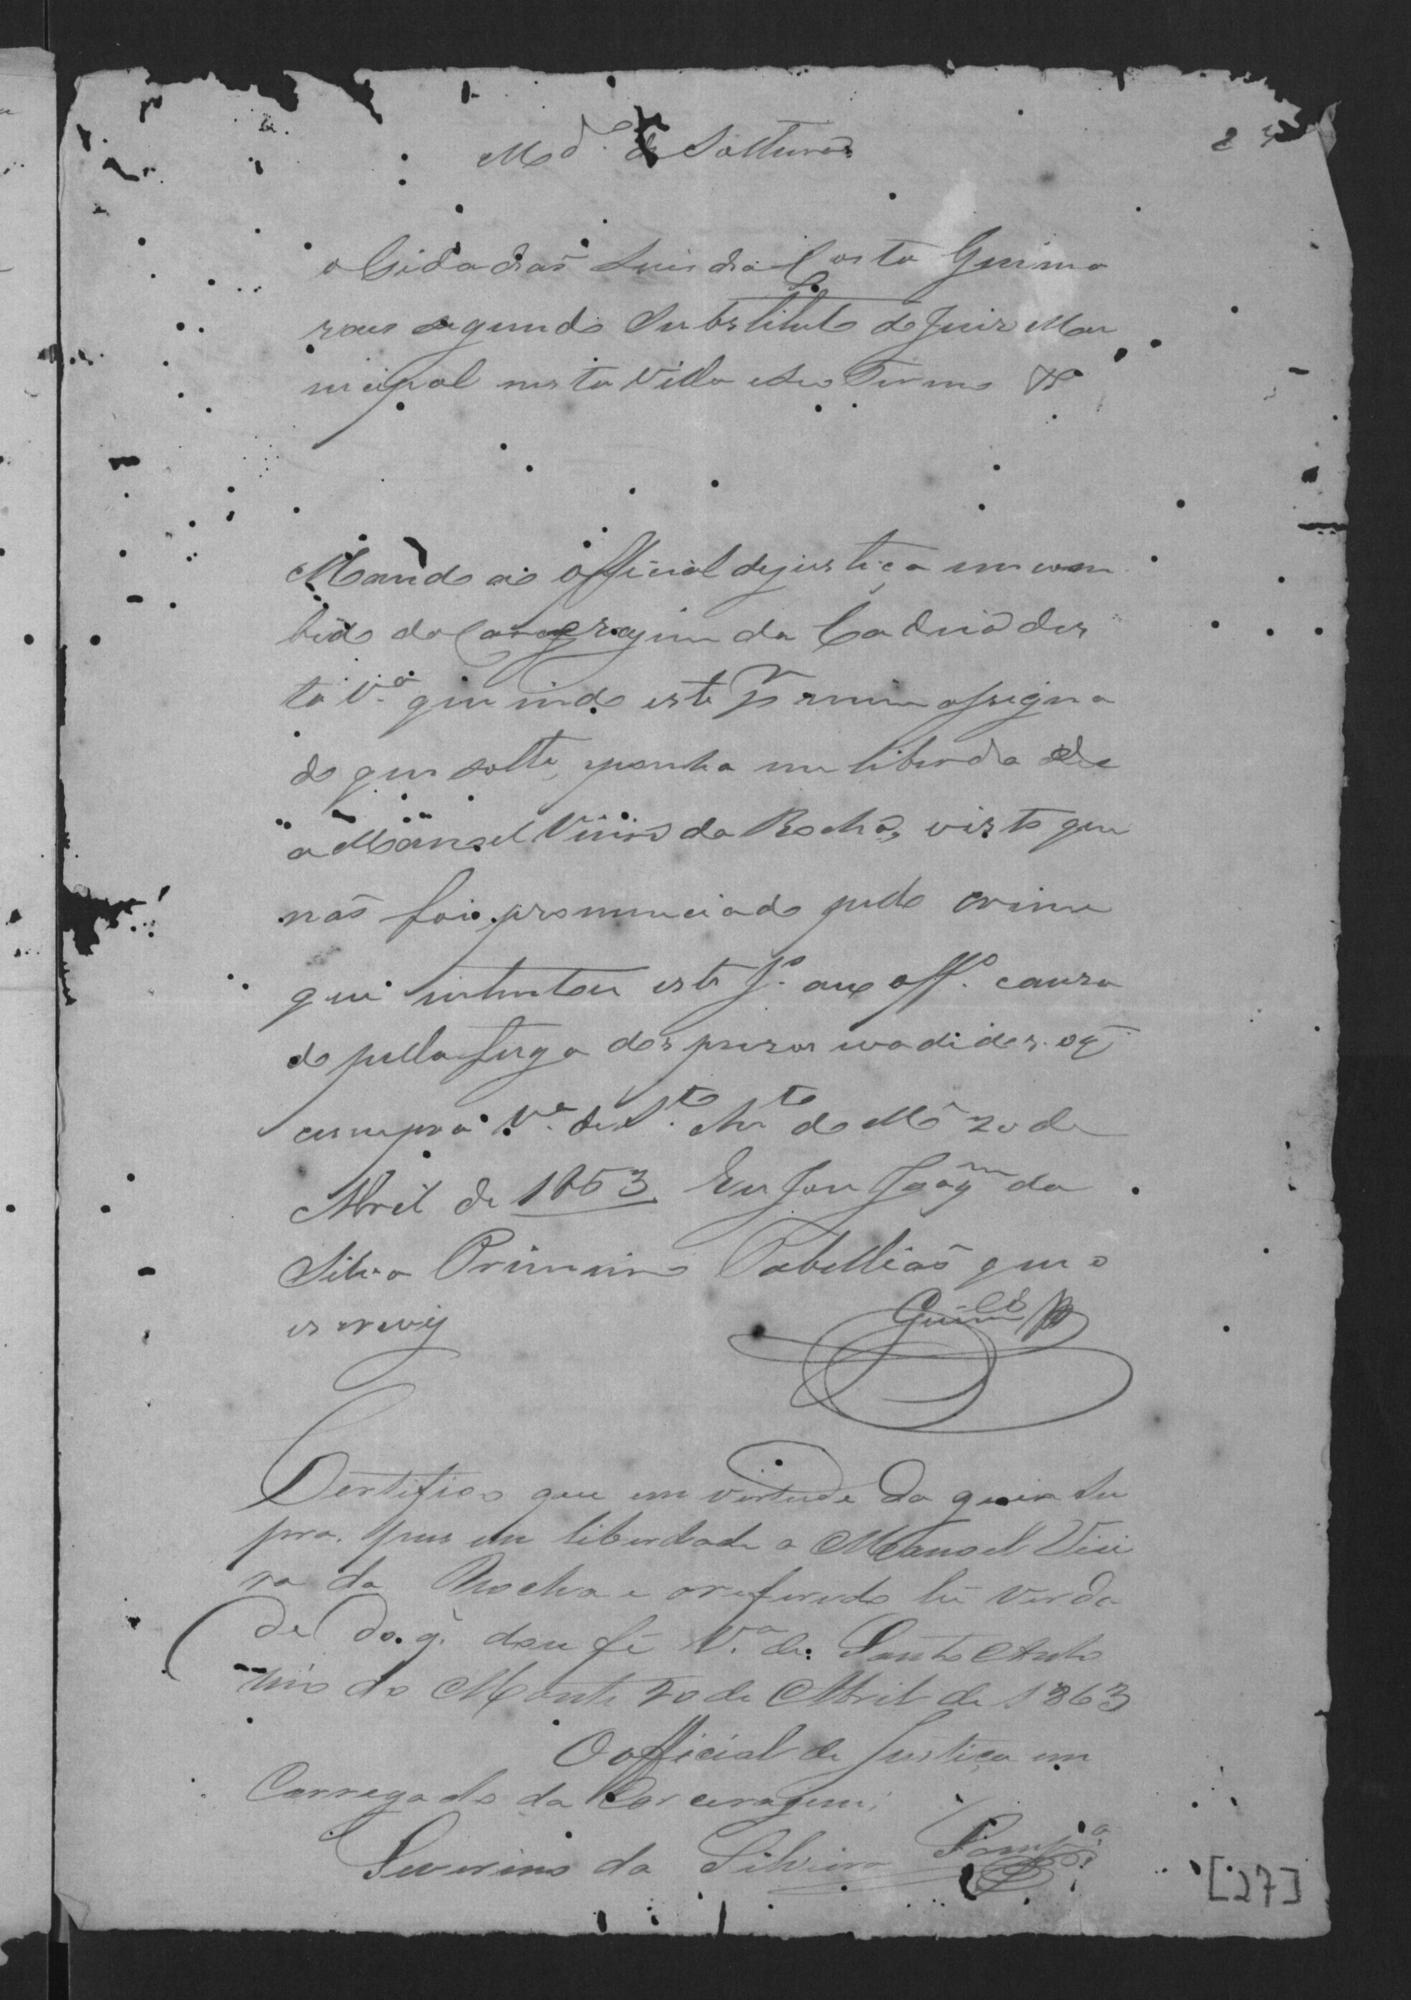 Md.º de Solttura
o Cidadaõ Luis da Costa Guima
raes segundo Substituto do Juiz Mu
nicipal nesta Villa e seo Termo &
Mando ao official de justiça incum
bido da Carceragem da Cadeia des
ta V.ª que indo este p.r mim assigna
do que solte, e ponha em liberdade
a Manoel Vieira da Rocha, visto que
naõ foi pronunciado pelo crime
que intentou este J.º ex off.º causa
do pella fuga dos prezos evadidos. o q̃
cumpra. V.ª de S.to An.to do M.e 20 de
Abril de 1863 Eu Joze Joaq.m da
Silva Primeiro Tabelliaõ que o
escrevy
Guim.es
Certifico que em virtude da guia su
pra. pus em liberdade a Manoel Viei
ra da Rocha e o referido hé verda
de do. q̃. dou fé V.ª de Santo Anto
nio do Monte 20 de Abril de 1863
O official de Justiça en
Carregado da Carceragem.
Severino da Silveira
[27]